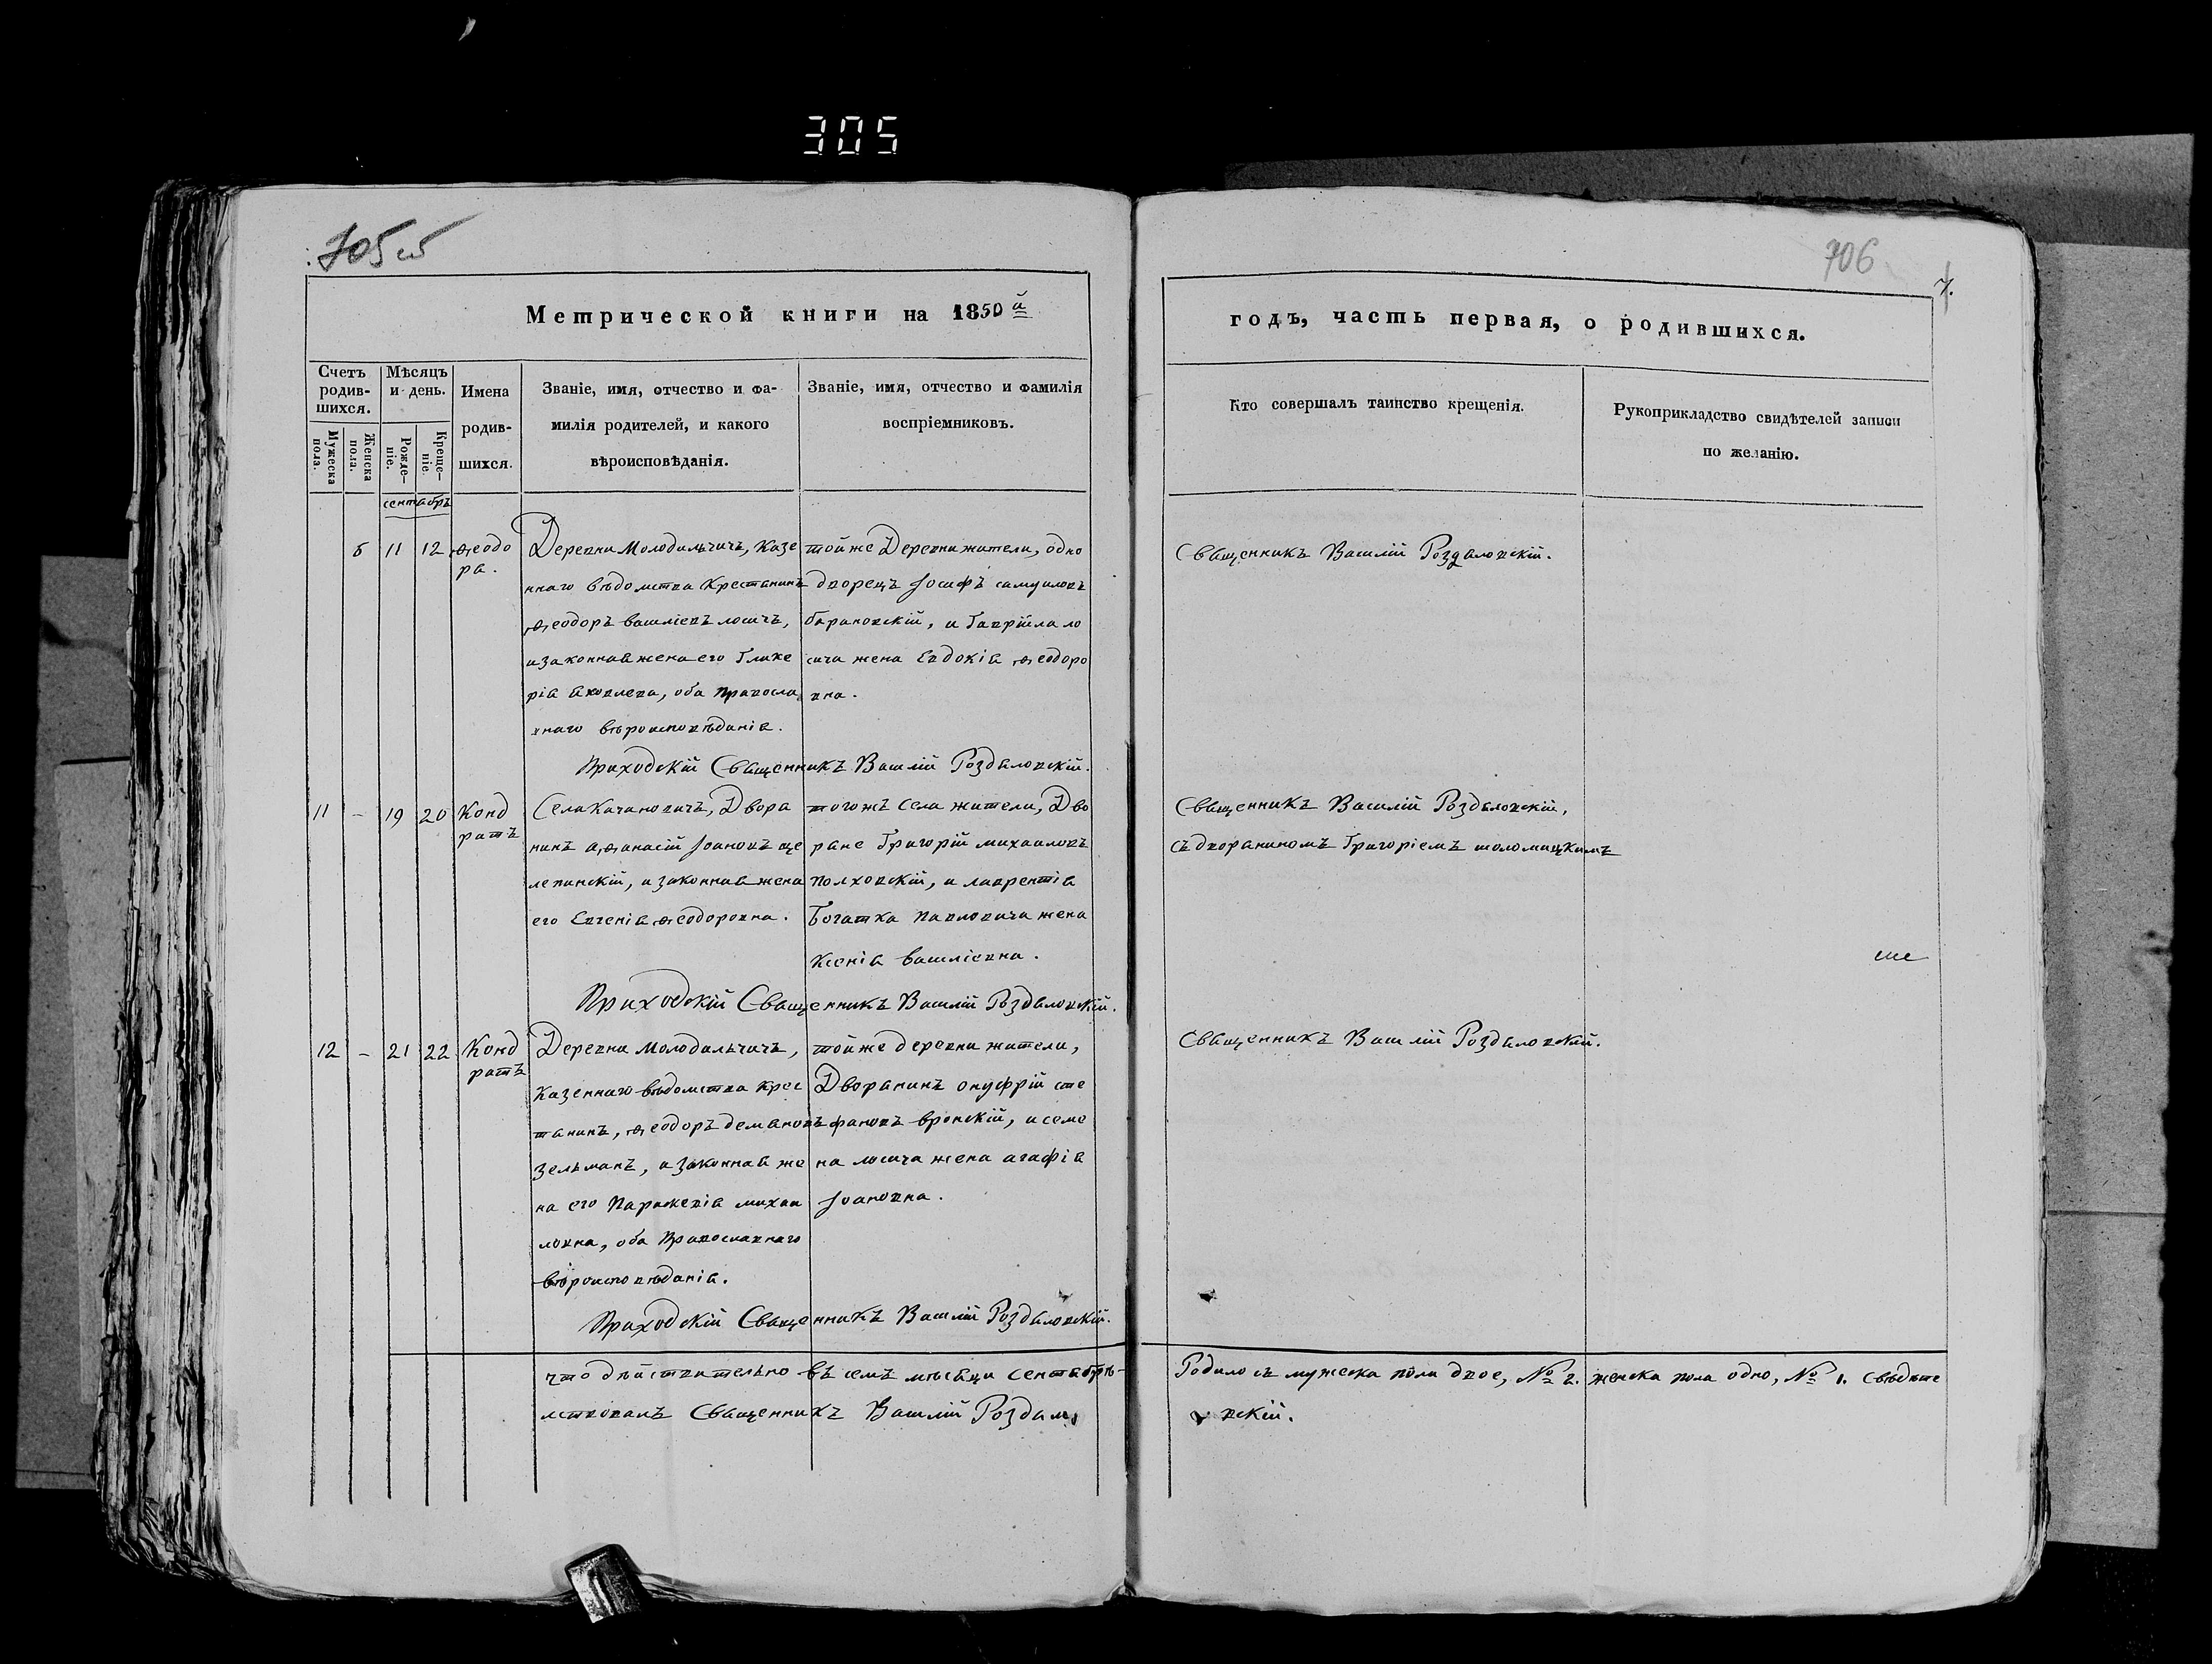 305
705об
706
7.
Метрической книги на 1850й
годъ, часть первая, о родившихся.
Счетъ родив-шихся.
Мужеска пола.
Женска пола.
Мѣсяцъ и день.
Рожде-ніе.
Креще-ніе.
Имена
родив-
шихся.
Званіе, имя, отчество и фа-
милія родителей, и какого
вѣроисповѣданія.
Званіе, имя, отчество и фамилія
воспріемниковъ.
Кто совершалъ таинство крещенія.
Рукоприкладство свидѣтелей записи
по желанію.
сентябрь
6 11 12 Ѳеодо
ра.
Деревни Молодильчичъ, Казе
ннаго вѣдомства Крестянинъ
Ѳеодоръ василіевъ лосичъ,
и законная жена его Глике
рія яковлева, оба Правосла
внаго вѣроисповѣданія.
тойже Деревни жители, одно
дворецъ Іосифъ самуиловъ
барановскій, и Гавріила ло
сича жена Евдокія Ѳеодоро
вна.
Священникъ Василій Роздяловскій.
Приходскій Священникъ Василій Роздяловскій.
11 - 19 20 Конд
ратъ
Села Качановичъ, Дворя
нинъ аѳанасій Іоановъ ще
пинскій, и законная жена
его Евгенія Ѳеодоровна.
тогожъ Села жители, Дво
ране Григорій михаиловъ
Полховскій, и лаврентія
Богатка павловича жена
Ксенія василіевна.
Священникъ Василій Роздяловскій,
съ дворяниномъ Григоріемъ
Приходскій Священникъ Василій Роздяловскій.
12 - 21 22 Конд
ратъ
Деревни Молодильчичъ,
Казеннаго вѣдомства Крес
танинъ, Ѳеодоръ демяновъ
зельманъ, и законная же
на его Параскевія михаи
ловна, оба Православнаго
вѣроисповѣданія.
тойже деревни жители,
Дворянинъ онуфрій сте
фановъ вронскій, и семе
на лосича жена агафія
Іоановна.
Священникъ Василій Роздяловскій.
Приходскій Священникъ Василій Роздяловскій.
что дѣйствительно въ семъ мѣсяци сентябрѣ-
Родилось мужеска пола двое, № 2. женска пола одно, № 1. свѣдѣте
льствовалъ Священникъ Василій Роздяло
вскій.